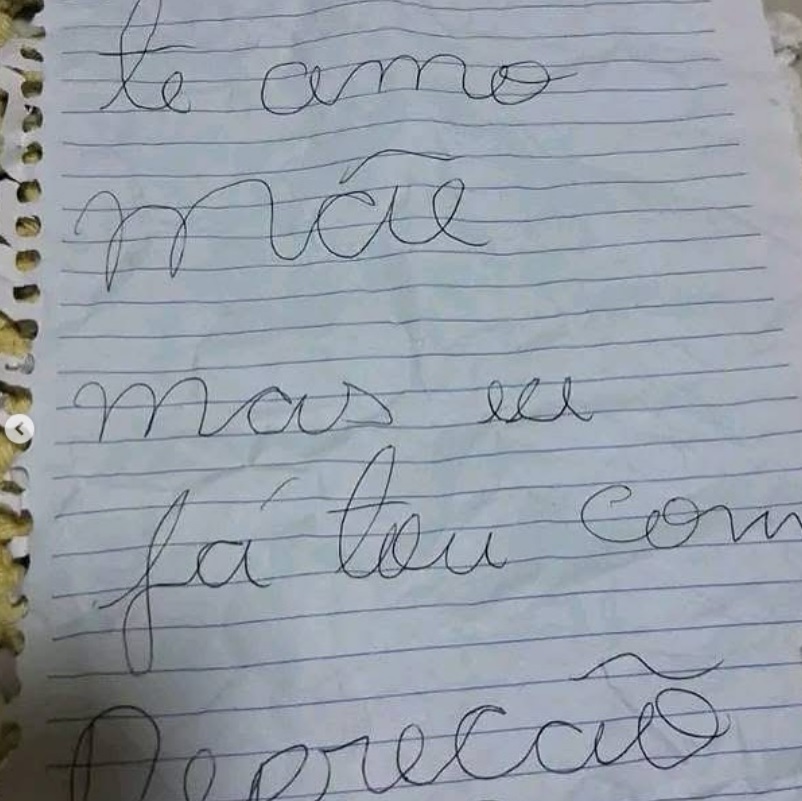 te amo
mãe
mas eu
já tou com
Deprecão